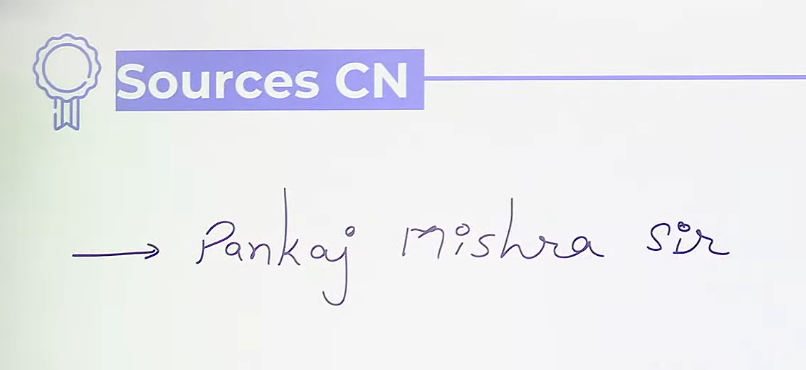 Sources CN
→ Pankaj Mishra Sir